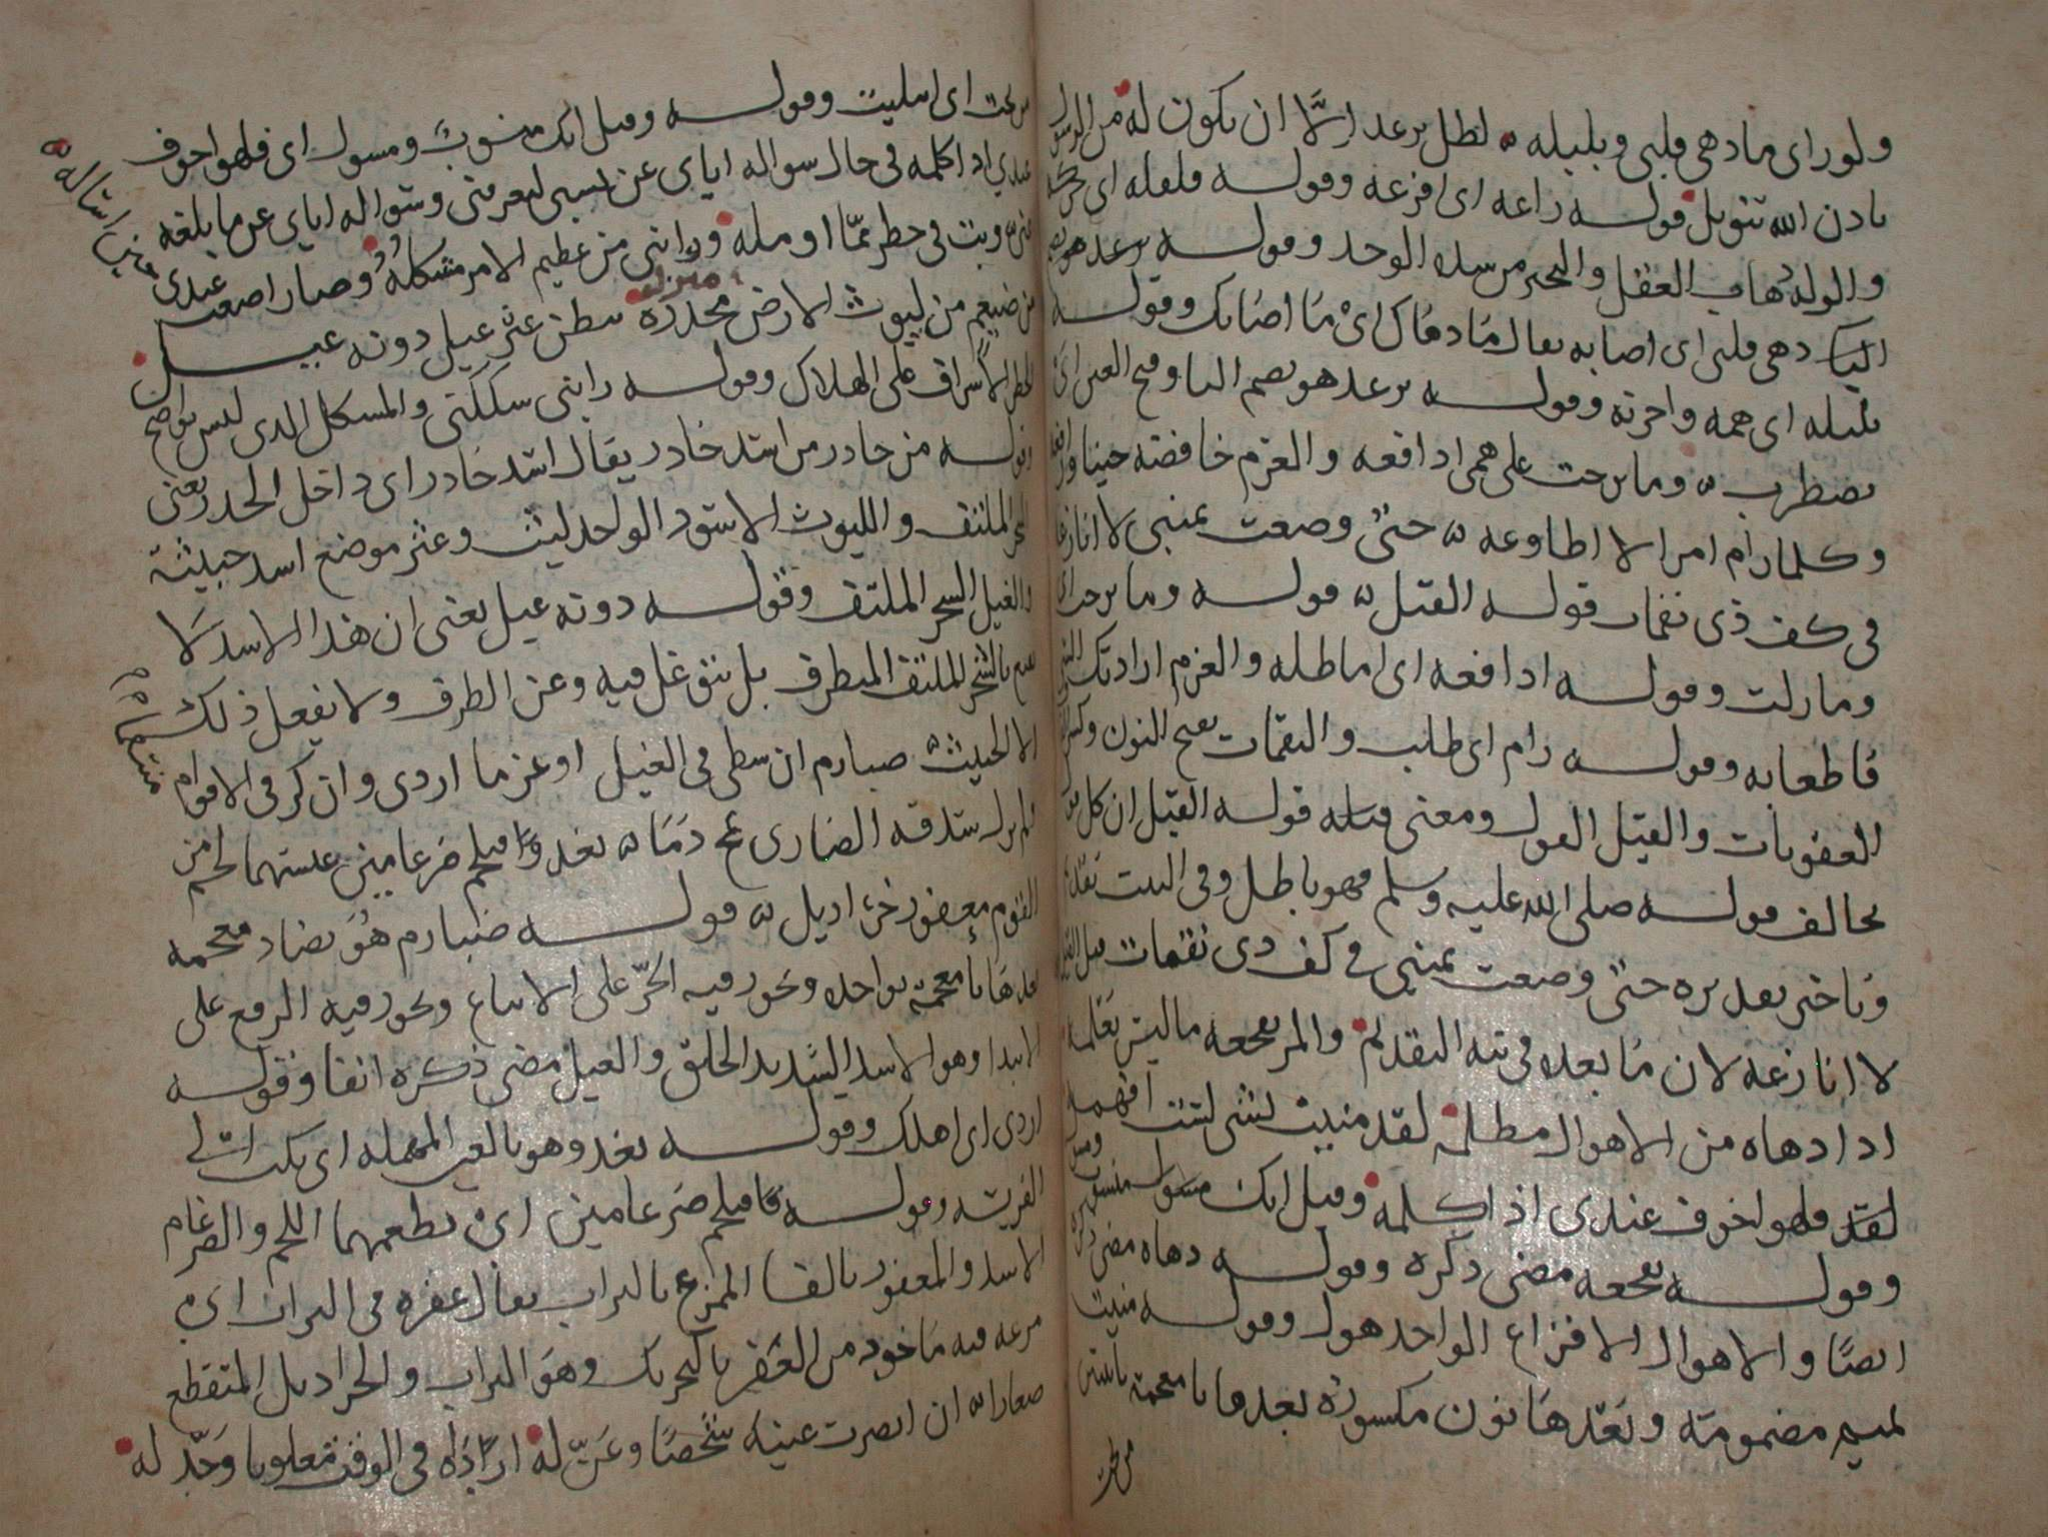 ولو راى ما دهى قلبى وبلبله لظل يرعد الا ان يكون له من الرسول
باذن الله تنويل قوله راعه اى افزعه وقوله فلعله اى
والوله ذهاب العقل والتحير من شده الوجد وقوله يرعد هو بضم
اليا دهى قلبى اى اصابه يقال ما دهاك اى ما اصابك وقوله
بلبله اى همه واحزنه وقوله يرعد هو بضم اليا وفتح العين اى
يضطرب وما برحت على همى ادافعه والعزم خافضه حينا
وكلما رام امرا لا اطاوعه حتى وضعت يمينى لا انازعه
فى كف ذى نقمات قوله القيل قوله وما برحت اى
وما زلت وقوله ادافعه اى اماطله والعزم ارادتك الشى
قاطعا به وقوله رام اى طلب والنقمات بفتح النون وكسر
العقوبات والقيل القول ومعنى قيله قوله القيل ان كل من
يخالف قوله صلى الله عليه وسلم فهو باطل وفى البيت تقديم
وتاخير تقديره حتى وضعت يمينى فى كف ذى نقمات قيله القيل
لا انازعه لان ما بعده فى نيه التقديم والمر يفجعه ما ليس يعلمه
اذا دهاه من الاهوال مظلمة لقد منيت بشى لست افهمه
لقد فلهو اخوف عندى اذ اكلمه وقيل انك منسوب ومسول
وقوله يفجعه مضى ذكره وقوله دهاه مضى ذكره
ايضا والاهوال الافزاع الواحد هول وقوله منيت
لميم مضمومة وبعدها نون مكسورة بعدها يا معجمة باثنتين
من تحت
من تحت اى ابتليت وقوله وقيل انك منسوب ومسول اى فلهو اخوف
عندى اذ اكلمه فى حال سواله اياى عن نسبى لمعرفتى وسواله اياى عن ما بلغه
عنى وبت فى خطر عما اومله ورابنى من عظيم الامر مشكله وصار اصعب عندى حين اساله
من ضيغم من ليوث الارض مخدره ببطن عثر غيل دونه غيل
منزله
الخطر الاشراف على الهلاك وقوله رابنى شككنى والمشكل الذى ليس بواضح
وقوله من خادر من اسد خادر يقال اسد خادر اى داخل الخدر يعنى
الشجر الملتف والليوث الاسود الواحد ليث وعثر موضع اسد خبيثة
والغيل الشجر الملتف وقوله دونه غيل يعنى ان هذا الاسد لا
يقنع بالشجر الملتف المتطرف بل يتوغل فيه وعن الطرف ولا يفعل ذلك
الا الخبيث ضبارم ان سطى فى الغيل او عزما اردى وان كر فى الاقوام منتقما
لم يزل شدقه الضارى يمج دما يغدو فيلحم ضرغامين عيشهما لحم من
القوم معفور خراديل قوله ضبارم هو بضاد معجمه
بعدها با معجمة بواحده ويجوز فيه الجر على الاتباع ويجوز فيه الرفع على
الابتدا وهو الاسد الشديد الخلق والغيل مضى ذكره انفا وقوله
اردى اى اهلك وقوله يغدو هو بالغين المعجمه اى يبكر الى
الفريسه وقوله فيلحم ضرغامين اى يطعمهما اللحم والضرغام
الاسد والمعفور بالفا الممرغ بالتراب يقال عفره فى التراب اى
مرغه فيه ماخوذ من العفر بالتحريك وهو التراب والخراديل المتقطع
صغارا ان ابصرت عينه شخصا وعن له اراده فى الوقت مغلوبا وجدله